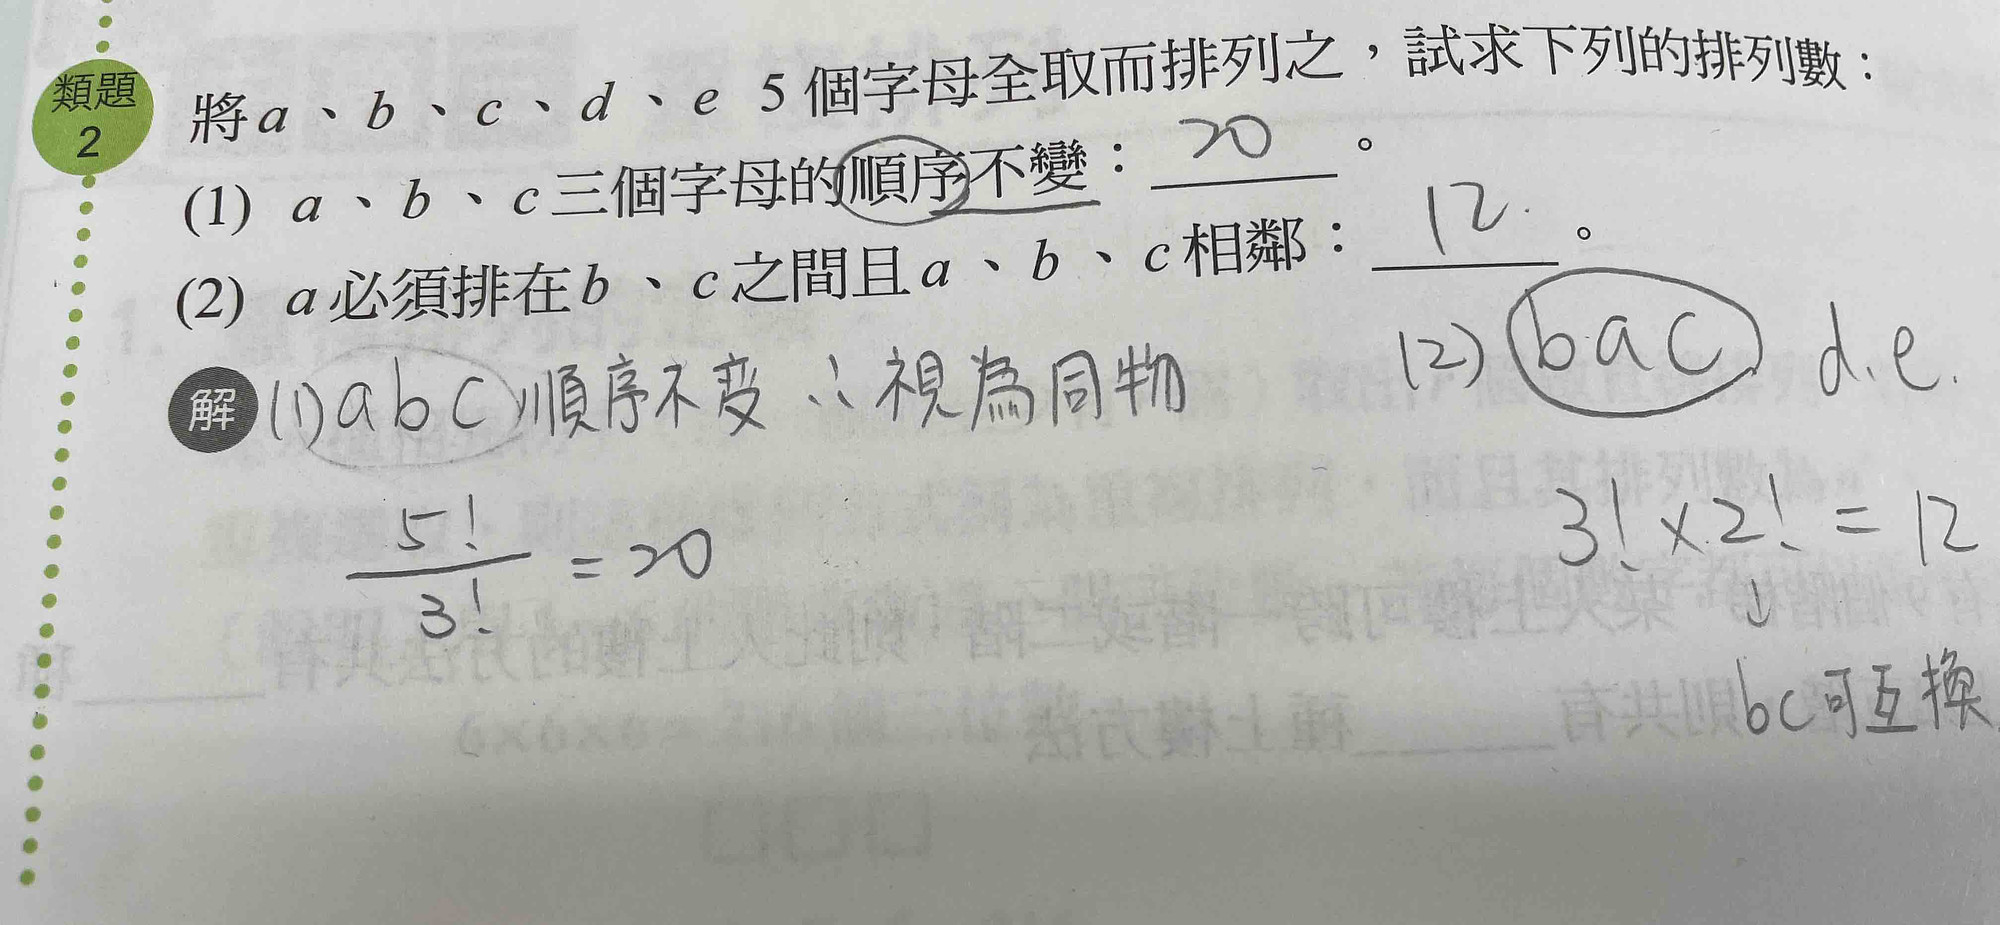 類題
2
將a、b、c、d、e 5個字母全取而排列之，試求下列的排列數：
(1) a、b、c三個字母的順序不變： 20 。
(2) a必須排在b、c之間且a、b、c相鄰： 12 。
解 (1) abc 順序不变 ∴視為同物
5!/3! = 20
(2) bac d.e.
3! × 2! = 12
↓
bc可互換